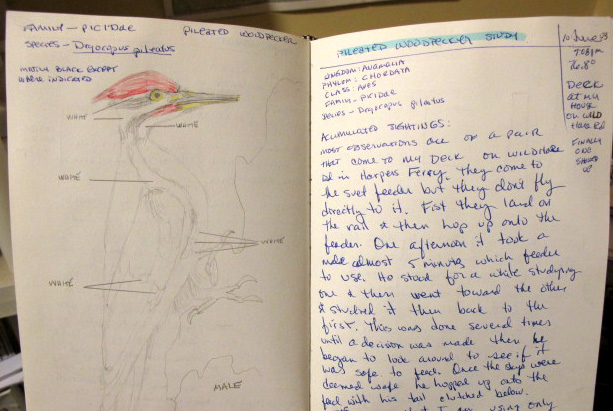 FAMILY - PICIDAE
SPECIES - Dryocopus pileatus
PILEATED WOODPECKER
MOSTLY BLACK EXCEPT
WHERE INDICATED
WHITE
WHITE
WHITE
WHITE
WHITE
MALE
PILEATED WOODPECKER STUDY
KINGDOM: ANIMALIA
PHYLUM: CHORDATA
CLASS: AVES
FAMILY - PICIDAE
SPECIES - Dryocopus pileatus
ACUMULATED SIGHTINGS:
MOST OBSERVATIONS ARE OF A PAIR
THAT COME TO MY DECK ON WILD HARE
Rd in Harpers Ferry. They come to
the suet feeder but they don't fly
directly to it. Fist they land on
the rail & then hop up onto the
feeder. One afternoon it took a
male almost 5 minutes which feeder
to use. He stood for a while studying
one & then went toward the other
& studied it then back to the
first. This was done several times
until a decision was made then he
began to look around to see if it
was safe to feed. Once the skys were
deemed safe he hopped up onto the
feed with his tail clutched below.
using only
DECK
AT MY
HOUSE
ON WILD
HARE Rd
FINALLY
ONE
SHOWED
UP